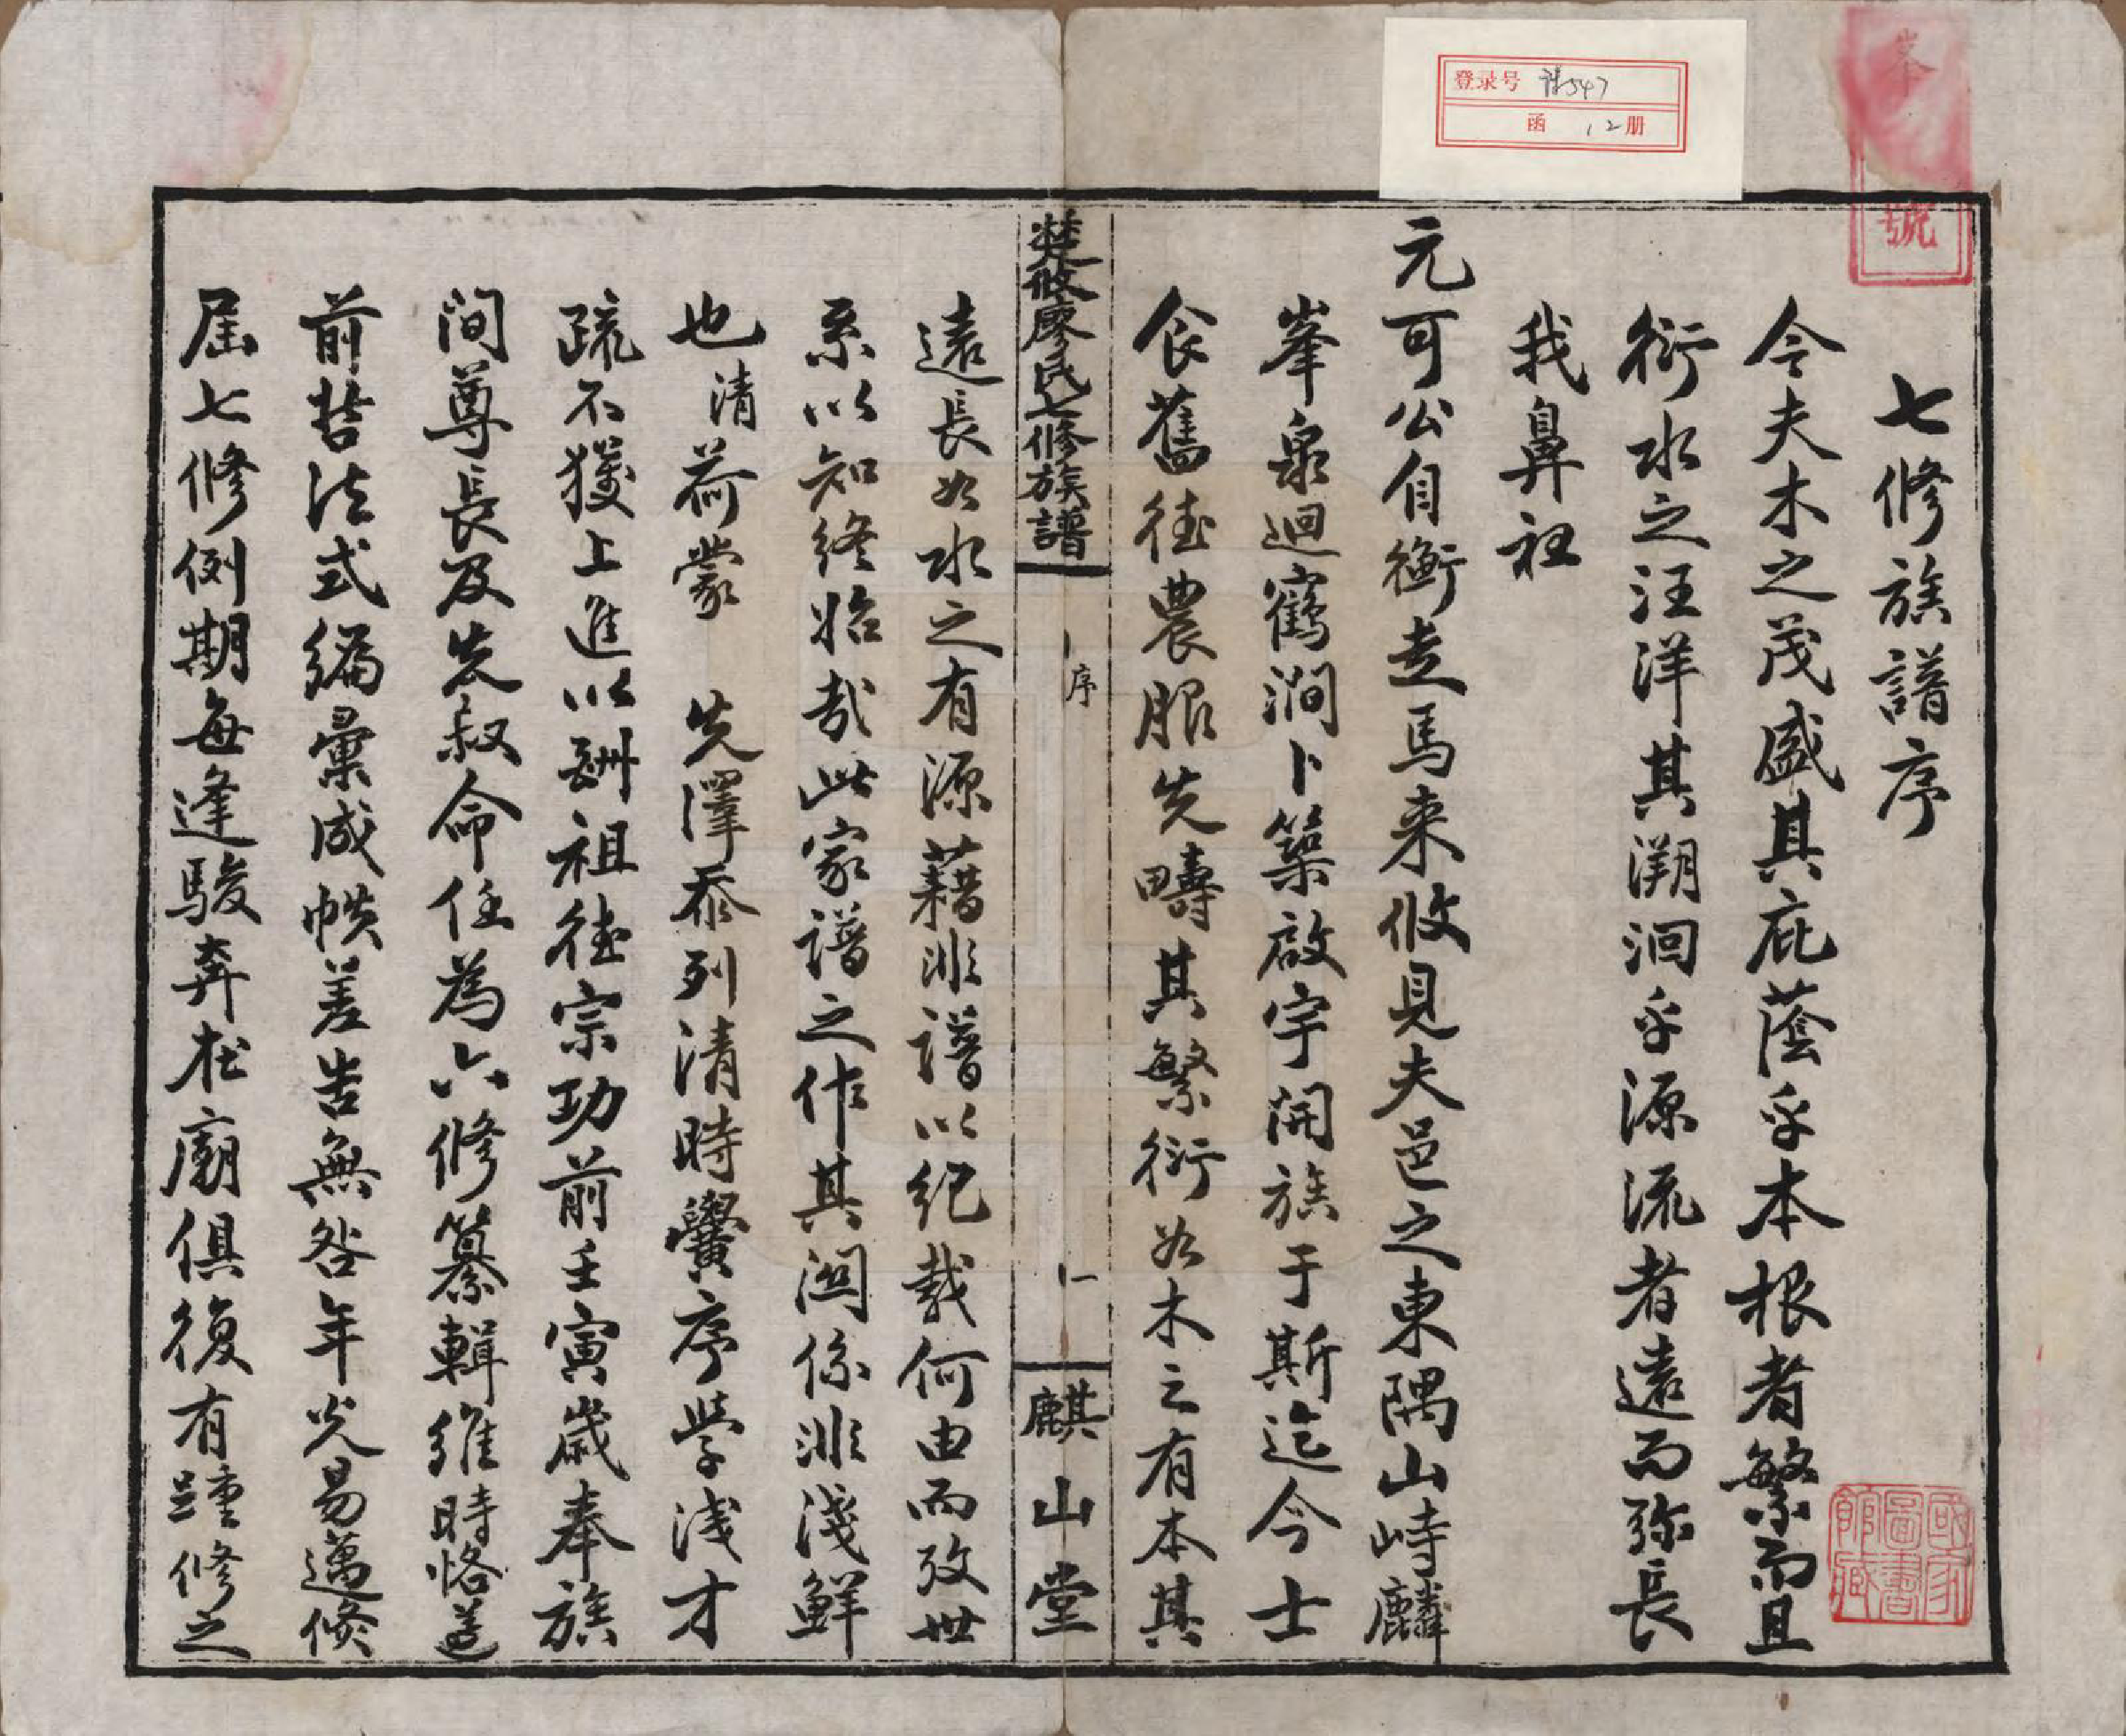 七修族譜序
今夫木之茂盛其庇蔭乎本根者繁而且
衍水之汪洋其溯洄乎源流者遠而弥長
我鼻祖
元可公自衡走馬来攸見夫邑之東隅山峙麟
峯泉迴鶴澗卜築啟宇開族于斯迄今士
食舊德農服先疇其繁衍如木之有本其
楚攸廖氏七修族譜
序
一
麒山堂
遠長如水之有源藉非譜以紀載何由而攷世
系以知終始哉此家譜之作其関係非淺鮮
也清荷蒙 先澤忝列清時黌序学浅才
疏不獲上進以酬祖德宗功前壬寅歲奉族
间尊長及先叔命任為六修纂輯維時恪遵
前哲法式编彙成帙差告無咎年光易邁倏
屆七修例期每逢駿奔在廟俱復有踵修之
登录号 谱547
函 12册
號
國家圖書館藏